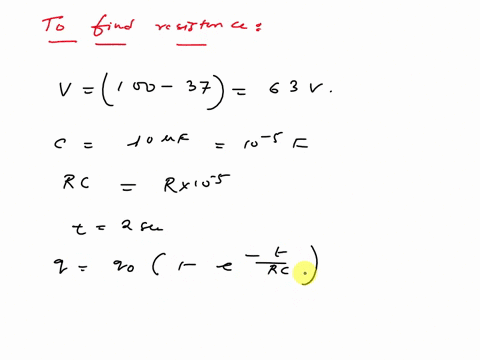 To find resistance:
V = (100 - 37) = 63 V.
C = 10 μF = 10⁻⁵ F
RC = R×10⁻⁵
t = 2 sec
q = q₀ (1 - e^(-t/RC))